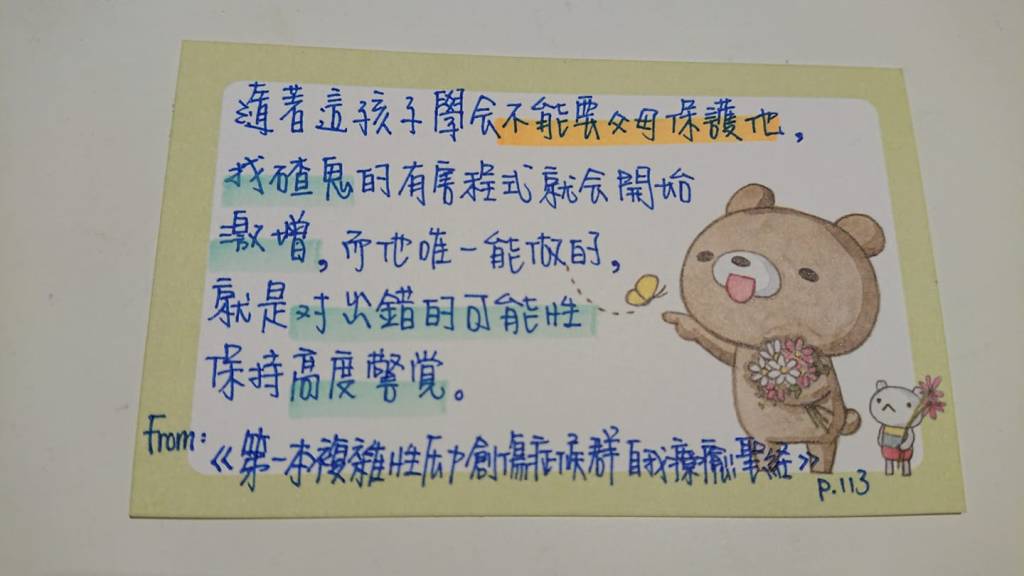 隨著這孩子學会不能要父母保護他，
找碴鬼的有害程式就会開始
激增，而他唯一能做的，
就是对出錯的可能性
保持高度警覚。
From:《第一本複雜性压力創傷症候群自我療癒聖経》
p.113